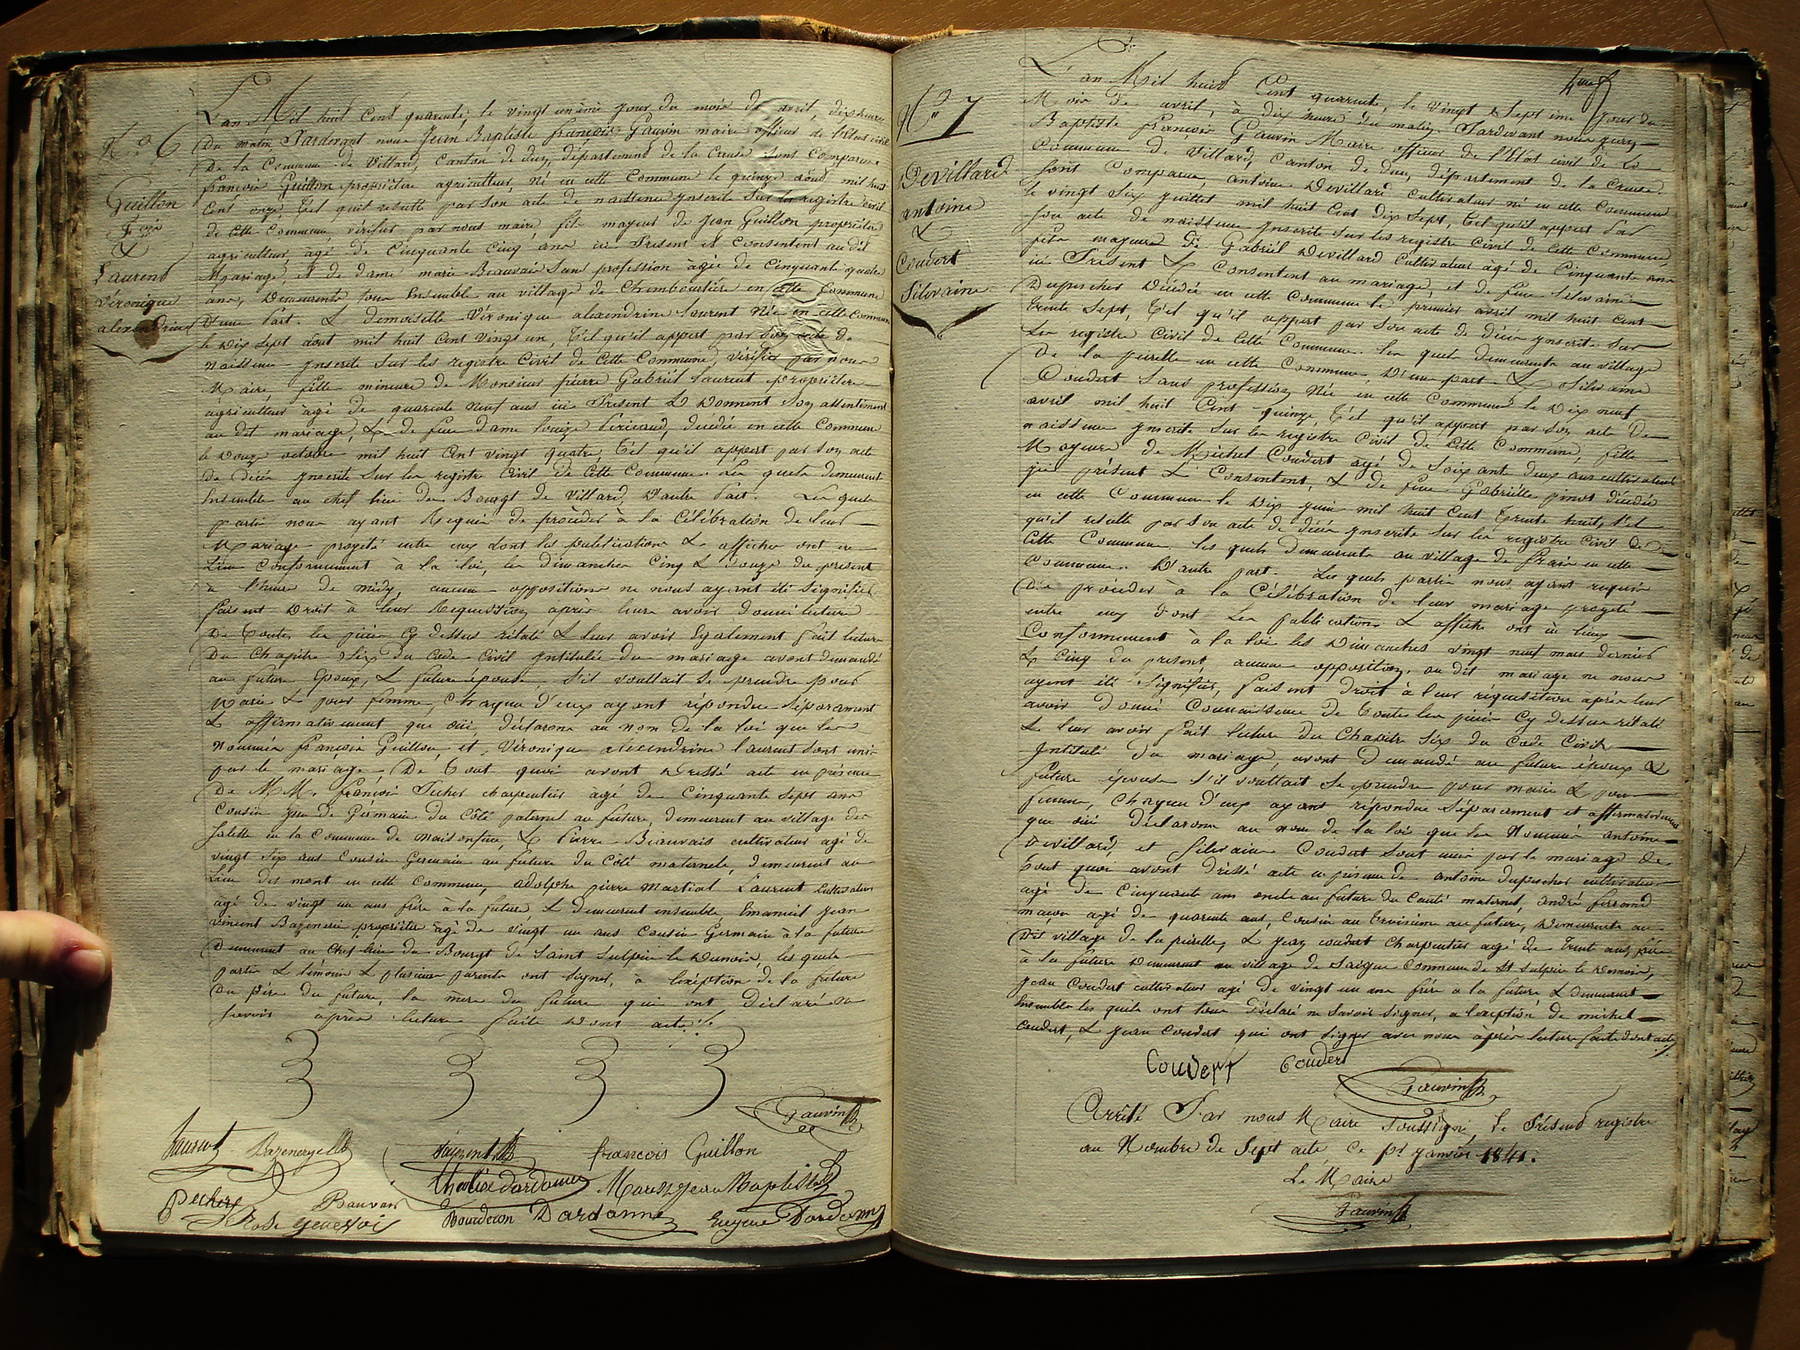 N.o 6
Guillon
F.çois
&
Laurend
Véronique
alexendrine
L'an Mil huit Cent quarente, le vingt unème jour du mois de avril, dix heures
Du matin Pardevant nous Jean Baptiste françois Gauvin maire officier de l'état civil
De la Commune de Villard, Canton de dun, département de la Creuse sont Comparus
françois Guillon propriétaire agriculteur, Né en cette Commune le quinze août mil huit
Cent onze, tel qu'il résulte par son acte de naissence ynscrite sur les registre civil
de Cette Commune vérifiés par nous maire, fils mageur de Jean Guillon propriétaire
agriculteur, agé de Cinquante Cinq ans ici Présent et Consentent au dit
Mariage, et de dame marie Beauvais sans profession âgée de Cinquante quatre
ans, Demeurents tous Ensemble au village de Chemboutière en cette Commune
D'une Part. & demoiselle Véronique alexendrine Laurent Née en cette Commune
le Dix Sept août mil huit Cent vingt un, tel qu'il appert par son acte de
naissence ynscrite sur les registre Civil de Cette Commune, vérifiés par nous
Maire, fille mineure de Monsieur pierre Gabriel Laurent propriétère
agriculteur agé de quarente neuf ans ici Présent & Donnent son assentiment
au dit mariage, & de feue dame Louize décédée en cette Commune
le Douze octobre mil huit Cent vingt quatre, tel qu'il appert par son acte
De décès ynscrite sur les registre Civil de Cette Commune. Les quels demeurent
Ensemble au chef lieu du Bourgt de Villard, D'autre Part. Les quels
partis nous ayant Requis de procèder à la Célébration de leur
Mariage progité entre eux dont les publications & affiches ont eu
Lieu Conformement à la loi, les dimanches Cinq & Douze du present
à l'heure de midy, aucune opposition ne nous ayent été signifiés
faisent Droit à leur Requisition, après leurs avoir donné lecture
De toutes les pièces Cy dessus rélaté & leur avoir Egalement fait lecture
Du Chapitre Six du Code Civil yntitulée du mariage avont demandé
au future Epoux, & future épouse s'il voullait se prendre pour
Marie & pour femme, Chaqun d'eux ayant répondue séparament
& affirmativement que oui, déclarons au nom de la loi que les
Nommés françois Guillon et Véronique alexendrine Laurent sont unis
par le mariage. De tout quoi avont Dressé acte en présence
De M.M. françois Pecher charpentier agé de Cinquante Sept ans
Cousin yssu de Germain du Côté paternel au future, demeurent au village de
en la Commune de maisonfeine, & Pierre Beauvais cultivateur agé de
vingt six ans Cousin Germain au future du Côté maternele, demeurent au
Lieu Des mont en cette Commune, adolphe pierre martial Laurent cultivateur
agé de vingt un ans frère à la future, & demeurent ensemble, Emanuel Jean
vincent Bazenerie propriétaire agé de vingt un ans Cousin Germain à la future
Demeurent au Chef lieu du Bourgt de Saint Sulpice le Dunois, les quels
partis & témoins & plusieurs parents ont signés, à l'exeption de la future
Du père du future, la mère du future qui ont Déclaré ne
Savoir après lecture faite Dont acte ./.
Gauvin
Laurent Bazenerye Laurent françois Guillon
Pecher Bauvais
Bourderon Dardanne Eugene Dardanne
N.o 7
Devillard
antoine
&
Coudert
Silvaine
L'an Mil huit Cent quarente, le vingt & Sept ème jour du
Mois De avril, à dix heures du matin, Pardevant nous Jean
Baptiste françois Gauvin Maire officier de l'Etat civil de la
Commune de Villard, Canton de dun, département de la Creuse
sont Comparus, antoine Devillard Cultivateur né en cette Commune
le vingt Six juillet mil huit Cent dix Sept, tel qu'il appert par
son acte de naissence ynscrite sur les registre Civil de Cette Commune
fils mageure de Gabriel Devillard Cultivateur âgé de Cinquante ans
ici Présent & Consentent au mariage, et de feue Silvaine
Dupéchez Décédée en cette Commune le premier avril mil huit Cent
trente Sept, tel qu'il appert par son acte de décès ynscrite sur
Les registre Civil de Cette Commune. les quels demeurents au village
De la pérelle en cette Commune, D'une part. & Silvaine
Coudert Sans profession, Née en cette Commune le Dix neuf
avril mil huit Cent quinze, tel qu'il appert par son acte De
naissence ynscrite sur les registre Civil de Cette Commune, fille
Mageure de Michel Coudert agé de Soixante deux ans cultivateur
ici présent & Consentent, & de feue Gabrièlle pinot décédée
en cette Commune le Dix juin mil huit Cent trente huit, tel
qu'il résulte par son acte de décès ynscrite sur les registre Civil de
Cette Commune, les quels demeurents au village de en cette
commune. D'autre part. Les quels partis nous ayant requis
De procéder à la Célébration de leur mariage progité
entre eux dont les publications & affiche ont eu lieux
Conformement à la loi les Dimanches vingt neuf mars dernier
& cinq du présent, aucune opposition, au dit mariage ne nous
ayent été signifiés, faisent droit à leur réquisition après leur
avoir donné Connaissence de toutes les pièces Cy dessus rélaté
& leur avoir fait lecture du Chapitre Six du Code Civil
yntitulé du mariage, avont demandé au future époux &
future épouse s'il voullait se prendre pour marie & pour
femme, Chaqun d'eux ayant répondue séparament et affirmativement
que oui déclarons au nom de la loi que les Nommés antoine
Devillard, et Silvaine Coudert Sont unis par le mariage de
tout quoi avont dréssé acte en présence de antoine Dupechez cultivateur
agé de Cinquante ans oncle au future du Cauté maternel, andré
maçon agé de quarente ans, Cousin au troisième au future, Demeurents au
Dit village de la pérelle, & Jean Coudert Charpentier agé de trente ans, frère
à la future Demeurent au village de Commune de St Sulpice le Dunois,
Jean Coudert cultivateur agé de vingt un ans frère à la future & demeurent
Ensembles les quels ont tous déclaré ne Savoir Signer, à l'exeption de michel
Coudert, & Jean Coudert qui ont signer avec nous après lecture faite Dont acte ./.
Coudert Coudert
Gauvin
Arrêté Par nous Maire Soussigné, le Présent registre
au Nombre de Sept acte ce p.r Janvier 1841.
Le Maire
Gauvin